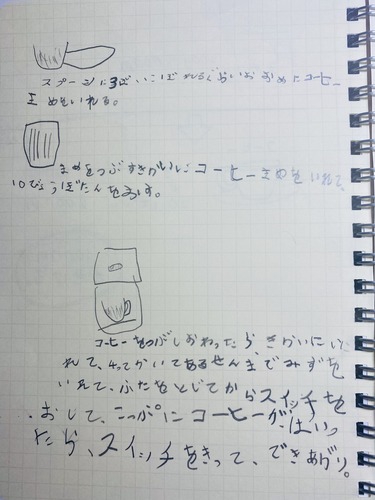 スプーンに3ばいこぼれるぐらいおおめにコーヒー
まめをいれる。
まめをつぶすきかいにコーヒーまめをいれて、
10びょうぼたんをおす。
コーヒーをつぶしおわったら、きかいにい
れて、4ってかいてあるせんまでみずを
いれて、ふたをとじてからスイッチを
おして、こっぷにコーヒーがはいっ
たら、スイッチをきって、できあがり。